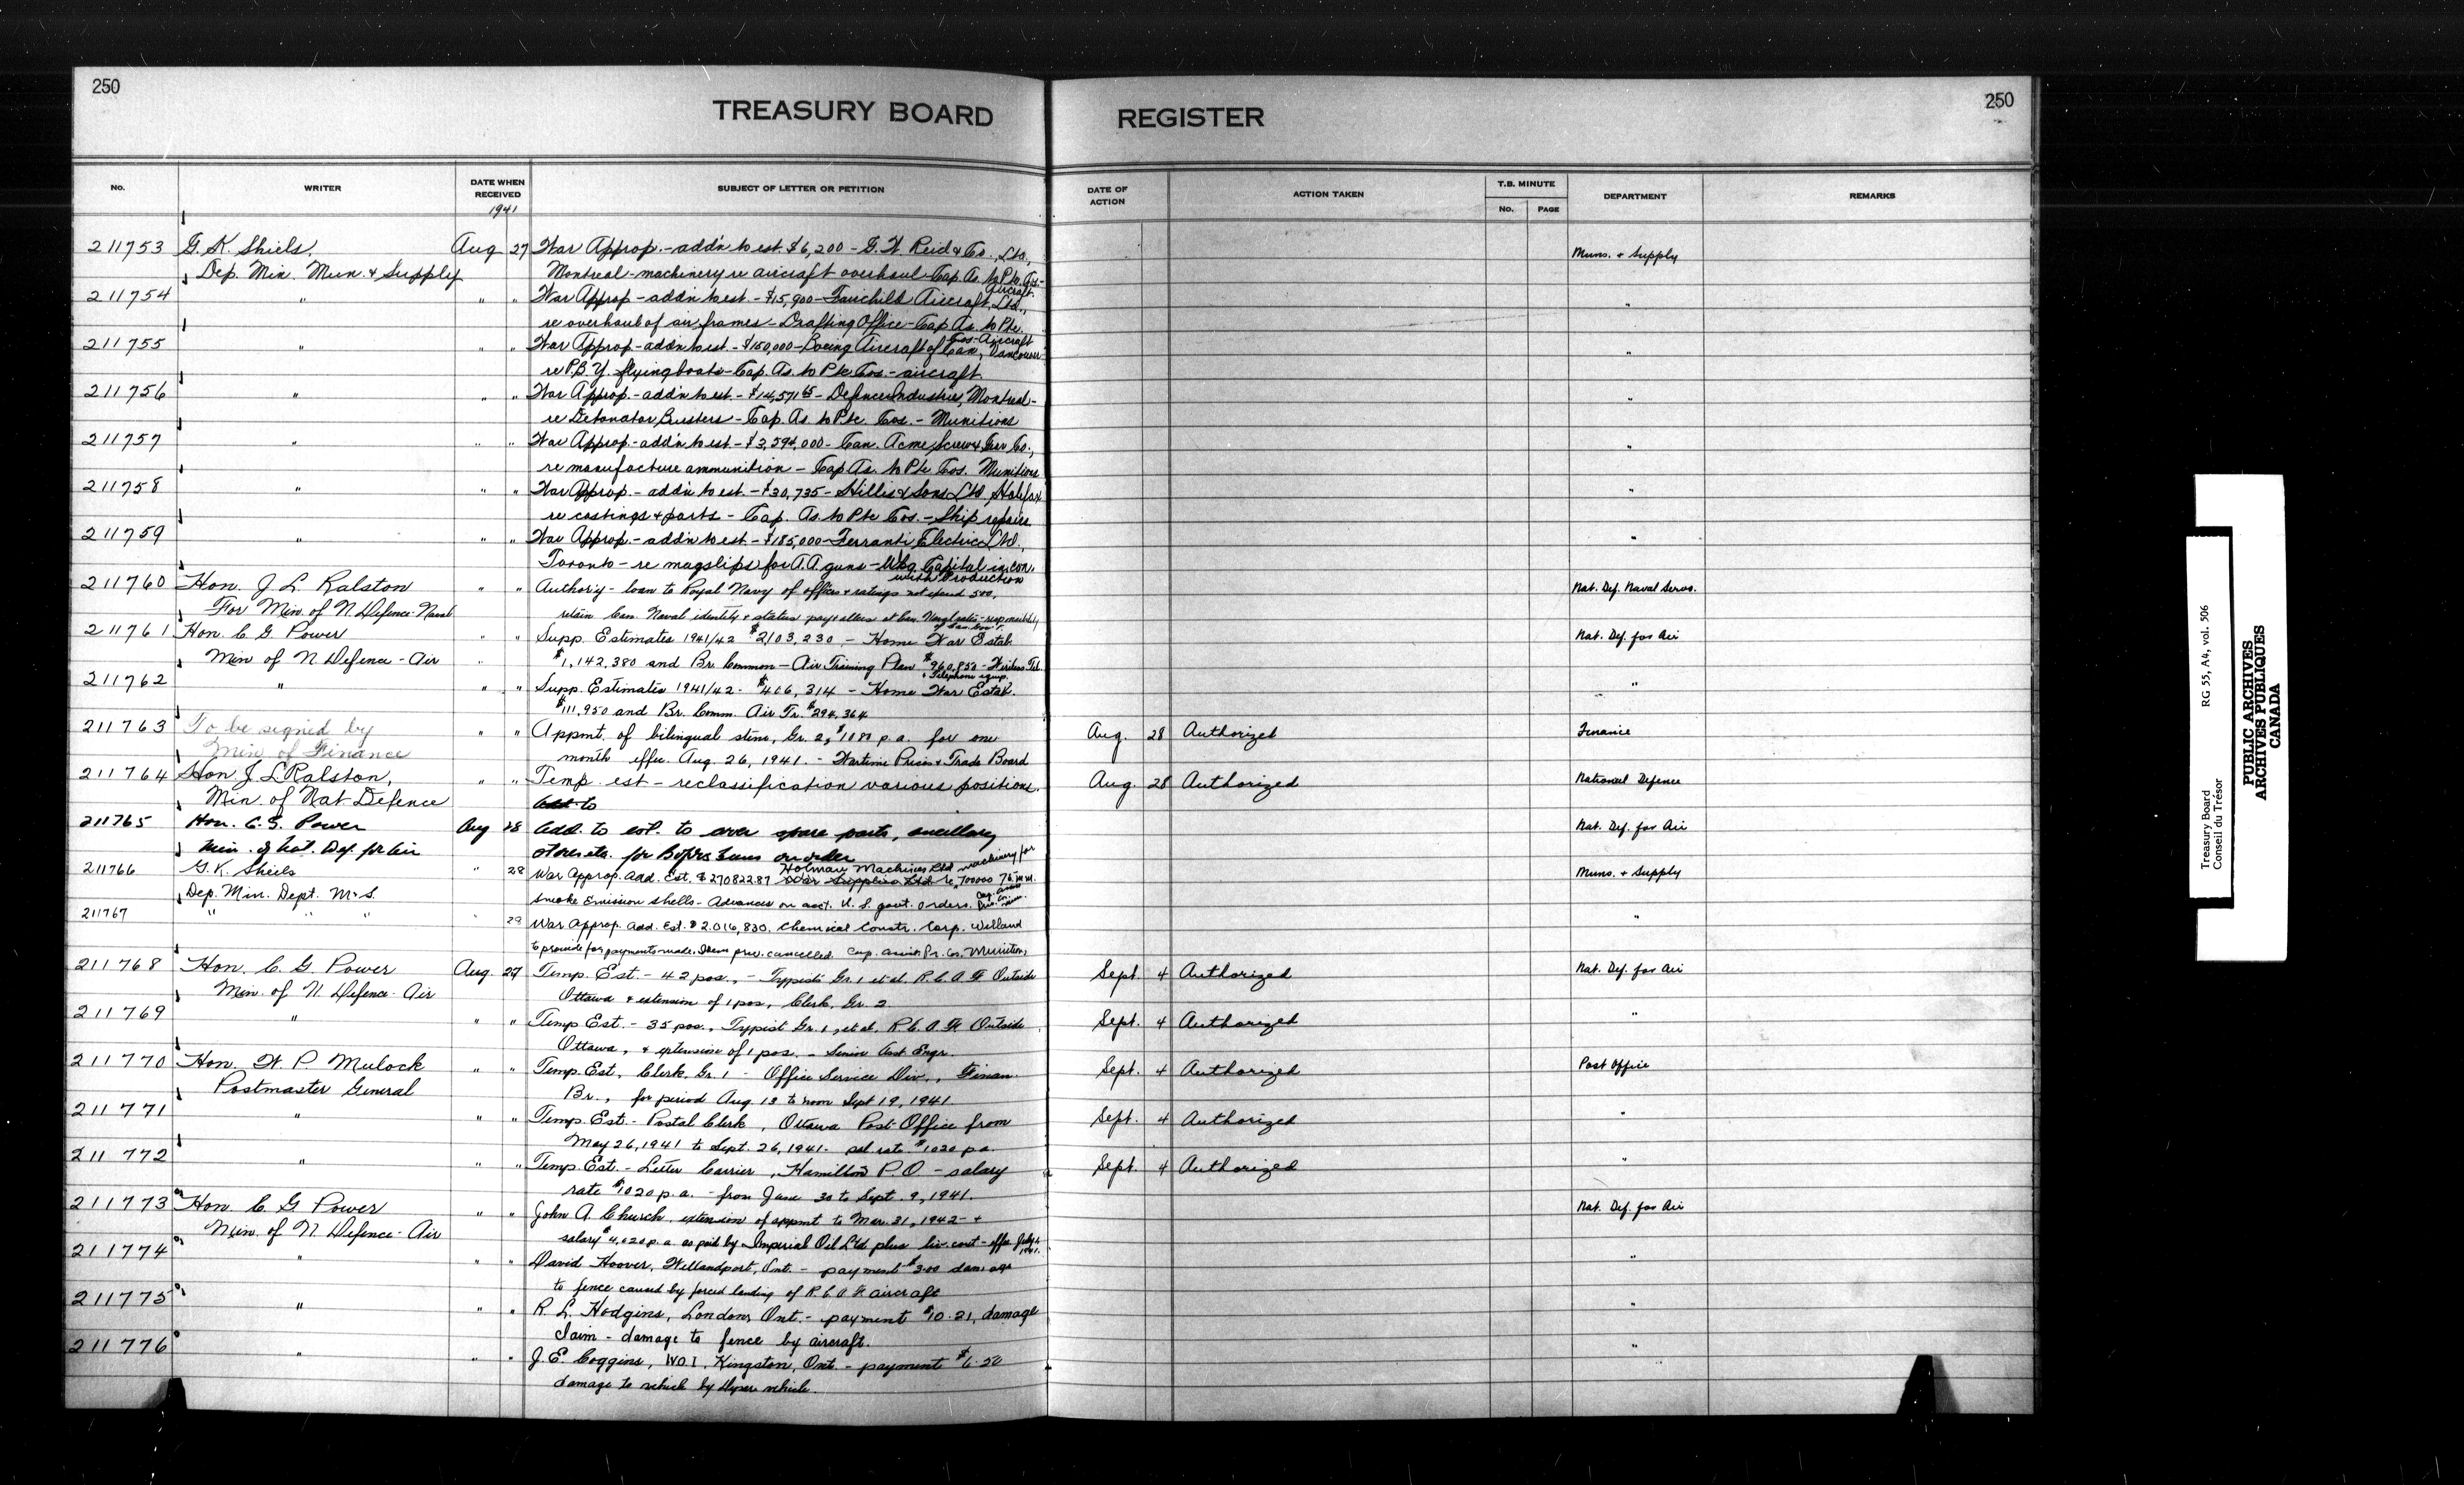 250
250
TREASURY BOARD REGISTER
No.
WRITER
DATE WHEN RECEIVED
SUBJECT OF LETTER OR PETITION
DATE OF ACTION
ACTION TAKEN
T.B. MINUTE
No.
PAGE
DEPARTMENT
REMARKS
1941
211753 G. K. Shiels, Aug 27 War Approp. - add'n to est. $6,200 - G. W. Reid & Co., Ltd., Muns. & Supply
Dep. Min. Mun. & Supply Montreal - machinery re aircraft overhaul - Cap. As. to Pte. Cos - Aircraft.
211754 " " " War Approp - add'n to est. - $15,900 - Fairchild Aircraft, Ltd., "
re overhaul of air frames - Drafting Office - Cap As. to Pte. Cos - Aircraft
211755 " " " War Approp - add'n to est. - $150,000 - Boeing Aircraft of Can, Vancouver "
re P.B.Y. flying boats - Cap. As. to Pte Cos. - aircraft.
211756 " " " War Approp. - add'n to est. - $14,571.65 - Defence Industries, Montreal - "
re Detonator Bursters - Cap. As. to Pte. Cos. - Munitions
211757 " " " War Approp. - add'n to est - $3,594,000 - Can. Acme Screw & Gear Co., "
re manufacture ammunition - Cap As. to Pte Cos. Munitions
211758 " " " War Approp. - add'n to est. - $30,735 - Hillis & Sons Ltd, Halifax "
re castings & parts - Cap. As. to Pte Cos. - Ship repairs
211759 " " " War Approp. - add'n to est - $185,000 - Ferranti Electric Ltd., "
Toronto - re magslips for A.A. guns - Wkg. Capital in con. with Production
211760 Hon. J. L. Ralston " " Author'y - loan to Royal Navy of officers & ratings not exceed 500, Nat. Def. Naval Servs.
For Min. of N. Defence - Naval retain Can. Naval identity & status pay & allces at Can. Naval rates - responsibility of Can. Gov't.
211761 Hon. C. G. Power " " Supp. Estimates 1941/42 $2,103,230 - Home War Estab. Nat. Def. for Air
Min of N. Defence - Air $1,142,380 and Br. Common - Air Training Plan $960,850 - Wireless Tel. & Telephone equip.
211762 " " " Supp. Estimates 1941/42 - $406,314 - Home War Estab. "
$111,950 and Br. Comm. Air Tr. $294,364
211763 To be signed by " " Appmt. of bilingual steno, Gr. 2, $1080 p.a. for one Aug. 28 Authorized Finance
Min of Finance month effec. Aug. 26, 1941. - Wartime Prices & Trade Board
211764 Hon J. L Ralston, " " Temp. est - reclassification various positions. Aug. 28 Authorized National Defence
Min. of Nat Defence Add. to
211765 Hon. C. G. Power Aug 28 Add. to est. to cover spare parts, ancillary Nat. Def. for Air
Min. of Nat. Def. for Air stores etc. for Bofors Guns on order
211766 G. K. Sheils " 28 War Approp. Add. Est. $27082287 War Supplies Ltd Holman Machines Ltd machinery for re 700000 76 m.m. Muns. & Supply
Dep. Min. Dept. M & S. smoke Emission shells - Advances on acct. U. S. govt. orders.
211767 " " " 29 War Approp. Add. Est. $2,016,830. Chemical Constr. Corp. Welland "
to provide for payments made. Item prev. cancelled. Cap. assist. Pr. Co. Munitions
211768 Hon. C. G. Power Aug. 27 Temp. Est - 42 pos., - Typists Gr. 1 et al. R.C.A.F. Outside Sept. 4 Authorized Nat. Def. for Air
Min. of N. Defence - Air Ottawa & extension of 1 pos, Clerk, Gr. 2
211769 " " " Temp Est. - 35 pos., Typist Gr. 1, et al. R.C.A.F. Outside Sept. 4 Authorized "
Ottawa, & extension of 1 pos. - Senior Asst Engr.
211770 Hon. W. P. Mulock " " Temp Est, Clerk, Gr. 1 - Office Service Div., Finan. Sept. 4 Authorized Post Office
Postmaster General Br., for period Aug. 13 to noon Sept 19, 1941.
211771 " " " Temp Est. - Postal Clerk, Ottawa Post Office from Sept. 4 Authorized "
May 26, 1941 to Sept. 26, 1941. sal rate $1020 p.a.
211772 " " " Temp Est. - Letter Carrier, Hamilton P.O - salary Sept. 4 Authorized "
rate $1020 p.a. - from June 30 to Sept. 9, 1941.
211773 Hon. C. G Power " " John A. Church, extension of appmt to Mar. 31, 1942 - & Nat. Def. for Air
Min. of N. Defence - Air salary $4,020 p.a. as paid by Imperial Oil Ltd plus liv. cost - effec July 1, 1941.
211774 " " " David Hoover, Wellandport, Ont. - payment $3.00 damage "
to fence caused by forced landing of R.C.A.F. aircraft
211775 " " " R. L. Hodgins, London, Ont. - payment $10.21, damage "
claim - damage to fence by aircraft.
211776 " " " J. E. Coggins, W.O.1, Kingston, Ont. - payment $6.50 "
damage to vehicle by vehicle.
Treasury Board RG 55, A4, vol. 506
Conseil du Trésor
PUBLIC ARCHIVES
ARCHIVES PUBLIQUES
CANADA